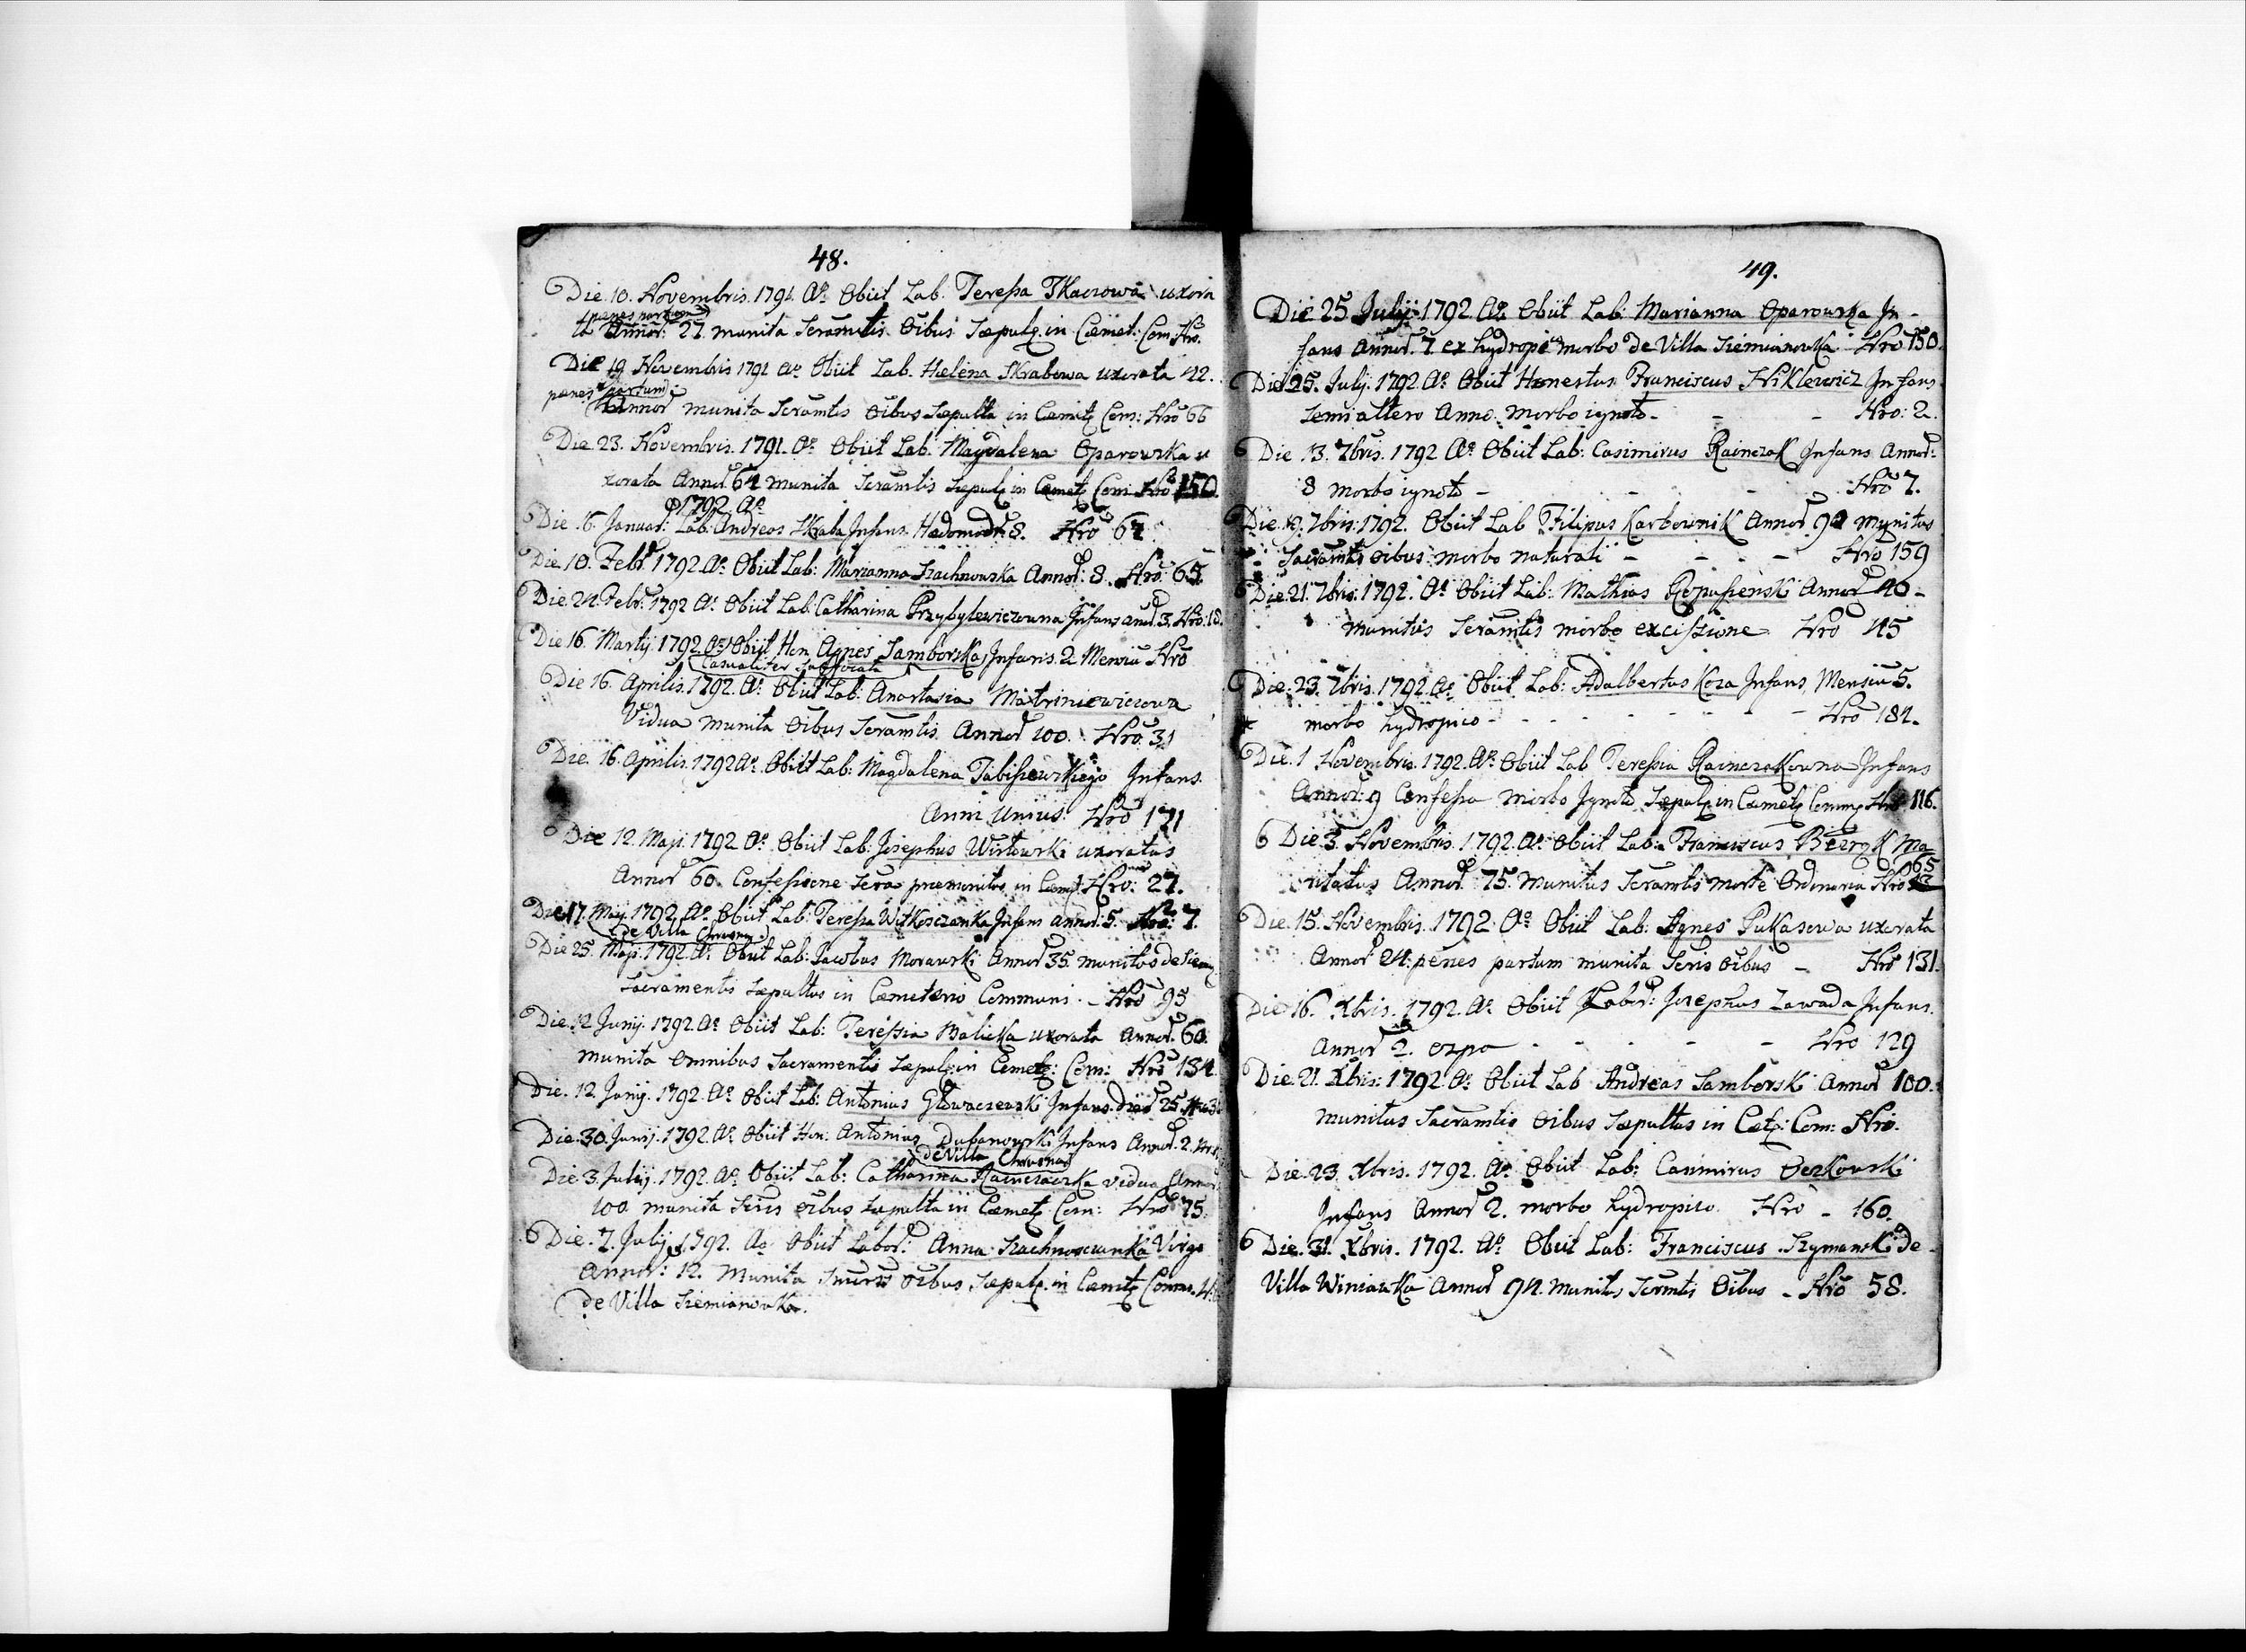 48.
Die 10. Novembris. 1791. Ao. Obiit Lab. Teressa Tkaczowa uxora
penes partum
ta Annor: 27. munita Scramtis Oibus Sæpult. in Cæmet: Com. Nro.
Die 19 Novembris 1791 Ao Obiit Lab. Helena Skrabowa uxorata 42.
penes partum
Annor munita Scramtis Oibus Sæpulta in Cæmet Com: Nro 66
Die 23. Novembris. 1791. Ao Obiit Lab. Magdalena Oparowska u
xorata Annor 64 munita Scramtis Sæpult in Cæmet Com Nro 150.
1792 Ao
Die 16. Januar: Lab: Andreas Skraba Infans. Hædomadr: 8. Nro 67
Die 10. Febr. 1792. Ao Obiit Lab: Marianna Szachnowska Annor: 8. Nro: 65.
Die 24 Febr: 1792 Ao Obiit Lab: Catharina Przybylewiczowna Infans anor. 3. Nro: 18.
Die 16 Martij. 1792. Ao. Obiit Hon Agnes Samborska Infans. 2 Mensiu Nro
Casualiter Suffocata
Die 16. Aprilis. 1792. Ao. Obiit Lab: Anastasia
Vidua munita Oibus Scramtis. Annor 100. Nro 31
Die. 16. Aprilis. 1792 Ao. Obiit Lab: Magdalena Infans.
Anni unius. Nro 171
Die 12. Maji. 1792 Ao. Obiit Lab: Josephus uxoratus
Annor 60. Confessione Scra premonitus in Cæmet. Nro: 27.
Die 17. Maij. 1792. Ao Obiit Lab: Teressa Witkosczanka Infans annor: 5. Nro: 7.
de Villa
Die 25. Maji. 1792. Ao. Obiit Lab: Jacobus Morawski Annor 35 munitus de
Sacramentis Sæpultus in Cæmeterio Communi. - Nro 95
Die 12 Junij. 1792. Ao Obiit Lab: Teressia Malicka uxorata Annor. 60.
munita Omnibus Sacramentis Sæpult: in Cemet: Com: Nro 134.
Die. 12. Junij. 1792. Ao Obiit Lab: Antonius Głowaczewski Infans. Dier 25. Nro
Die. 30. Junij. 1792. Ao Obiit Hon: Antonius Dubanowski Infans Annor. 2.
de Villa
Die 3. Julij. 1792. Ao. Obiit Lab: Catharina vidua Annor
100. munita Scris Oibus Sæpulta in Cæmet Com: Nro 75.
Die. 7. Julij 1792. Ao Obiit Labor: Anna Szachnosczanka Virgo
Annor: 12. Munita Oibus Sæpult. in Cæmet Comm.
de Villa Siemianowka.
49.
Die 25 Julij 1792. Ao. Obiit Lab: Marianna Oparowska In-
fans Annor. 7. ex hydropi morbo de Villa Siemianowka Nro 150.
Die 25. Julij. 1792. Ao. Obiit Honestus Franciscus Niklewicz Infans
Semialtero Anno. morbo ignoto - - - Nro: 2.
Die 13. 7bris. 1792 Ao. Obiit Lab: Casimirus Rainczak Infans Annor:
8 morbo ignoto - - - Nro 7.
Die. 19. 7bris: 1792. Obiit Lab Filipus Karbownik Annor 90 munitus
Sacramtis oibus morbo naturali - - - - Nro 159
Die. 21. 7bris. 1792. Ao Obiit Lab: Mathias Annor 40 -
munitus Scramtis morbo Nro 45
Die. 23. 7bris. 1792. Ao Obiit Lab: Adalbertus Koza Infans Mensiu 5.
morbo hydropico - - - - - - Nro 184.
Die. 1 Novembris. 1792. Ao Obiit Lab Teressia Rainczakowna Infans
Annor: 9 Confessa morbo Ignoto Sæpult in Cæmet Comm Nro 116.
Die. 3. Novembris. 1792. Ao. Obiit Lab: Franciscus Ma
65
ritatus Annor. 75. munitus Scramtis morte Ordinaria Nro
Die. 15. Novembris. 1792. Ao Obiit Lab: Agnes uxorata
Annor 24. penes partum munita Scris Oibus - Nro 131.
Die 16. Xbris. 1792. Ao Obiit Labor: Josephus Zawada Infans.
Annor 2. ospa - - - - - Nro 129
Die. 21. Xbris: 1792. Ao. Obiit Lab Andreas Samborski Annor 100.
munitus Sacramtis Oibus Sæpultus in Com: Nro.
Die. 23. Xbris. 1792. Ao Obiit Lab: Casimirus
Infans Annor 2. morbo hydropico. Nro - 160.
Die. 31. Xbris. 1792. Ao. Obiit Lab: Franciscus Szymanski de
Villa Winiarka Annor 94. munitus Scrmtis Oibus - Nro 58.